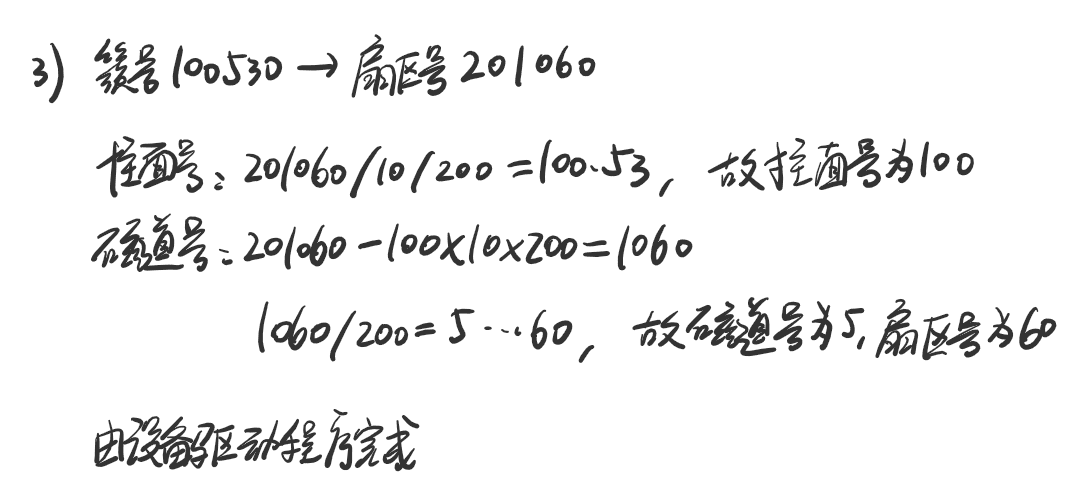 3) 簇号100530→扇区号201060
柱面号：201060/10/200=100.53，故柱面号为100
磁道号：201060-100×10×200=1060
1060/200=5…60，故磁道号为5,扇区号为60
由设备驱动程序完成